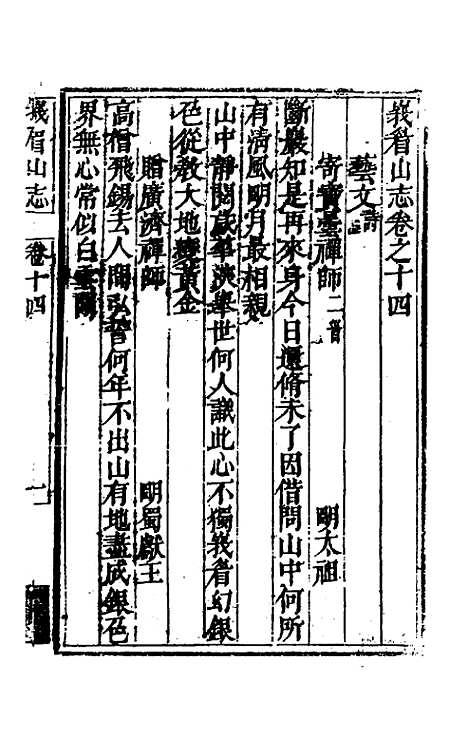 峩眉山志卷之十四
藝文詩
寄寳曇禪師二首 明太祖
斷巖知是再來身今日還脩未了因借問山中何所
有清風明月最相親
山中靜閱歲華深舉世何人識此心不獨峩眉幻銀
色從教大地變黃金
贈廣濟禪師 明蜀獻王
高僧飛錫去人間弘誓何年不出山有地盡成銀色
界無心常似白雲閒
峩眉山志 卷十四 一